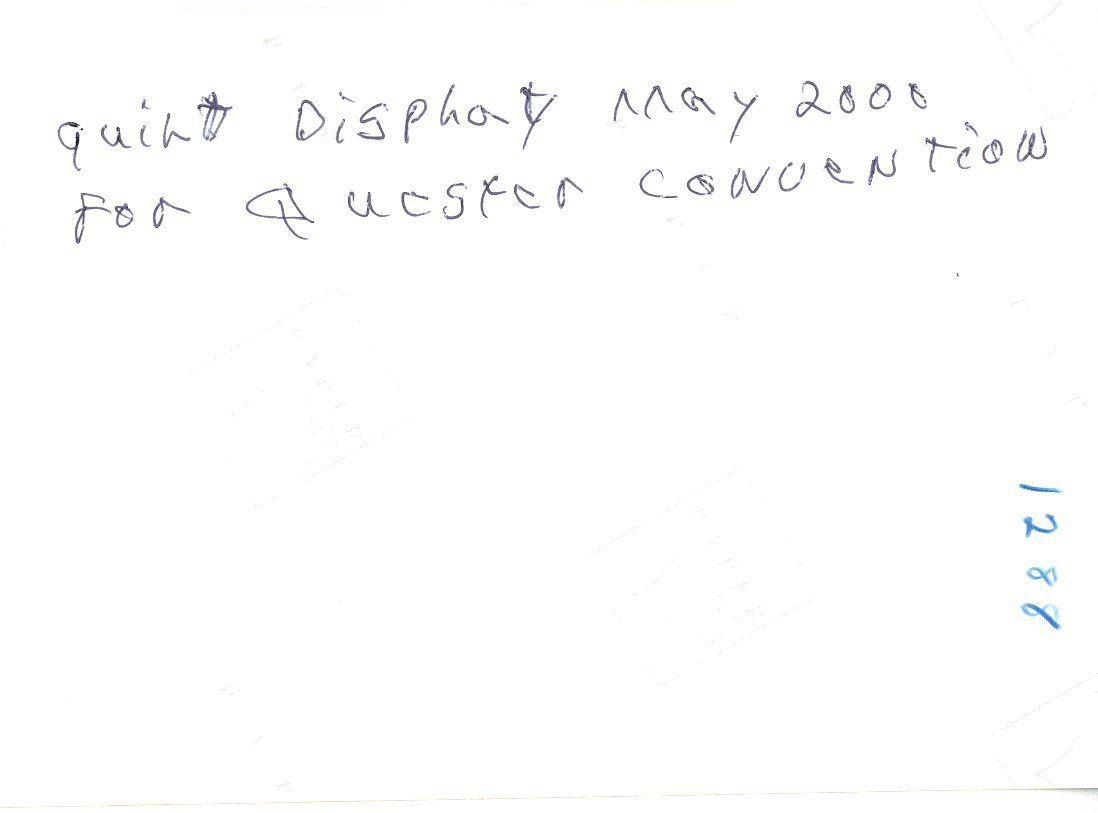 quilt Display May 2000
For Quester Convention
1288